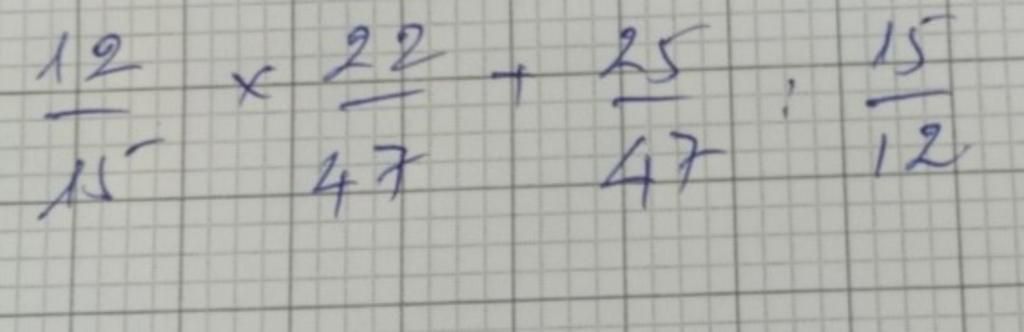 12/15 × 22/47 + 25/47 : 15/12